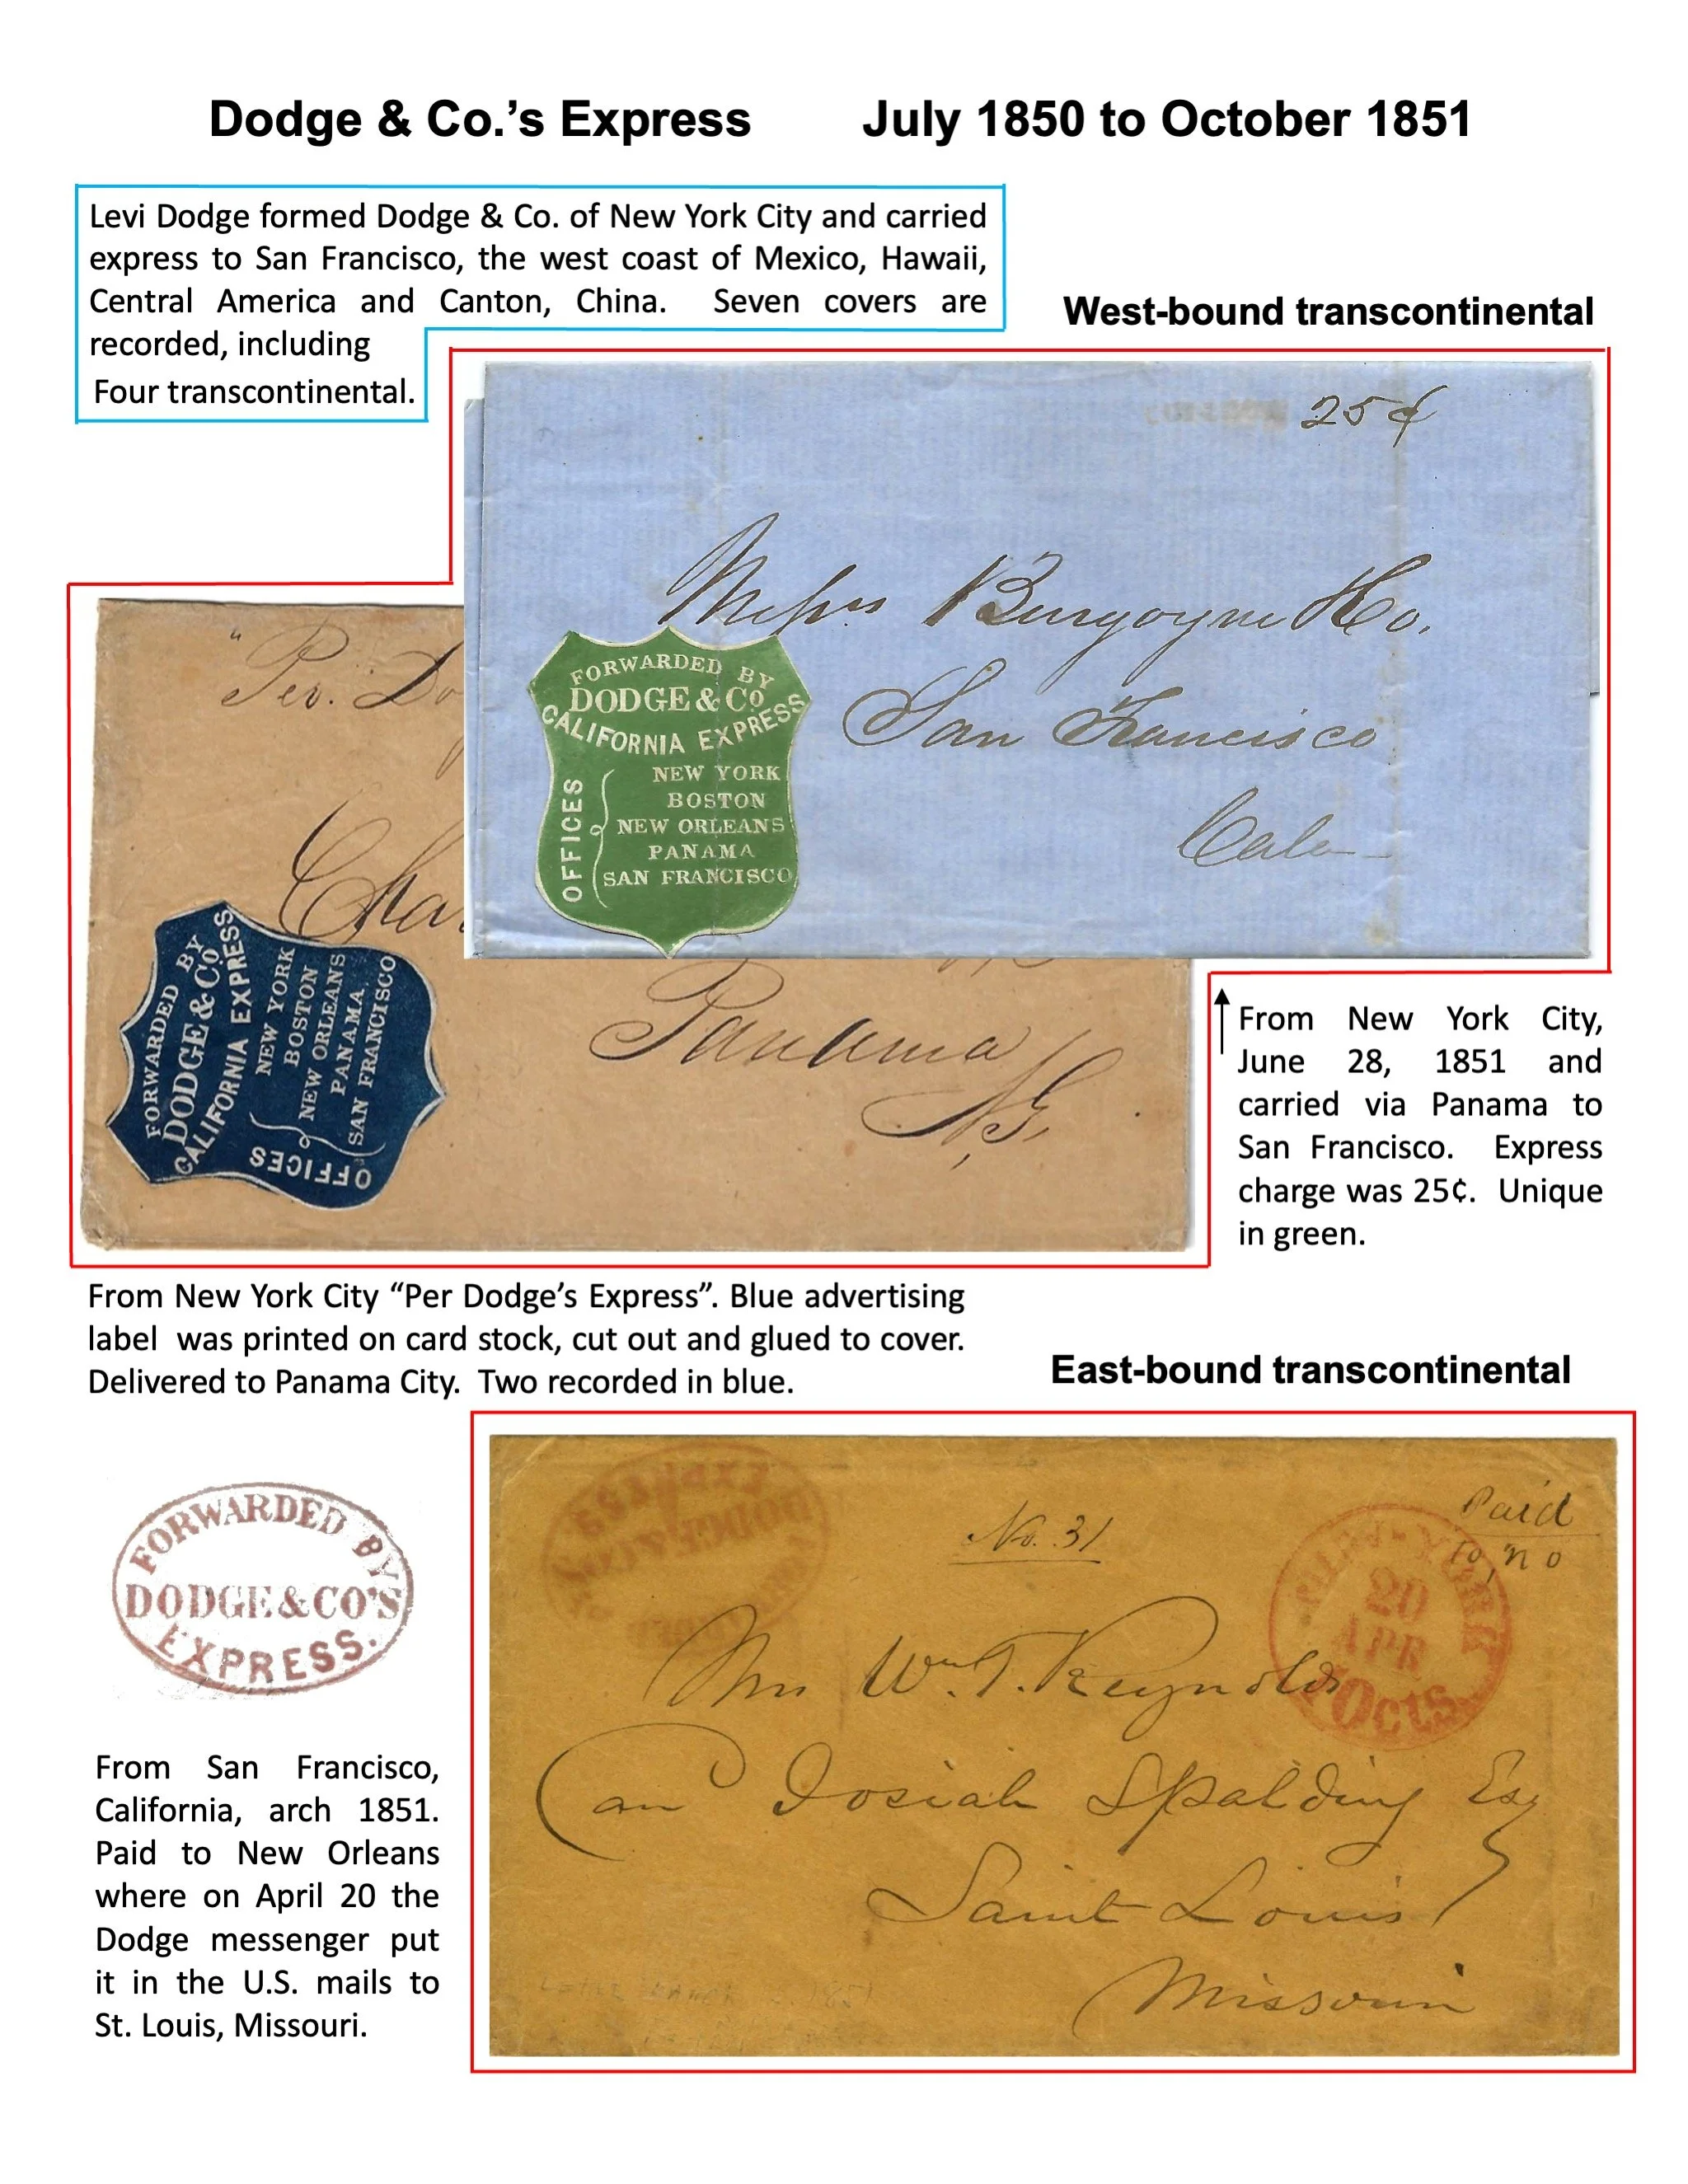 Dodge & Co.’s Express July 1850 to October 1851
Levi Dodge formed Dodge & Co. of New York City and carried
express to San Francisco, the west coast of Mexico, Hawaii,
Central America and Canton, China. Seven covers are
recorded, including
Four transcontinental.
West-bound transcontinental
25 ¢
Messrs Burgoyne & Co.
San Francisco
Cala
FORWARDED BY
DODGE & Co
CALIFORNIA EXPRESS
OFFICES
NEW YORK
BOSTON
NEW ORLEANS
PANAMA
SAN FRANCISCO
"Per. Do
Cha
Panama
N,G,
FORWARDED BY
DODGE & Co
CALIFORNIA EXPRESS
OFFICES
NEW YORK
BOSTON
NEW ORLEANS
PANAMA.
SAN FRANCISCO
From New York City,
June 28, 1851 and
carried via Panama to
San Francisco. Express
charge was 25¢. Unique
in green.
From New York City “Per Dodge’s Express”. Blue advertising
label was printed on card stock, cut out and glued to cover.
Delivered to Panama City. Two recorded in blue.
East-bound transcontinental
FORWARDED BY
DODGE & CO'S
EXPRESS.
From San Francisco,
California, arch 1851.
Paid to New Orleans
where on April 20 the
Dodge messenger put
it in the U.S. mails to
St. Louis, Missouri.
FORWARDED BY
DODGE & CO'S
EXPRESS
No. 31
Paid
to N O
20
APR
10cts
Mrs Wm. T. Reynolds
Care Josiah Spalding Esq
Saint Louis
Missouri
1851